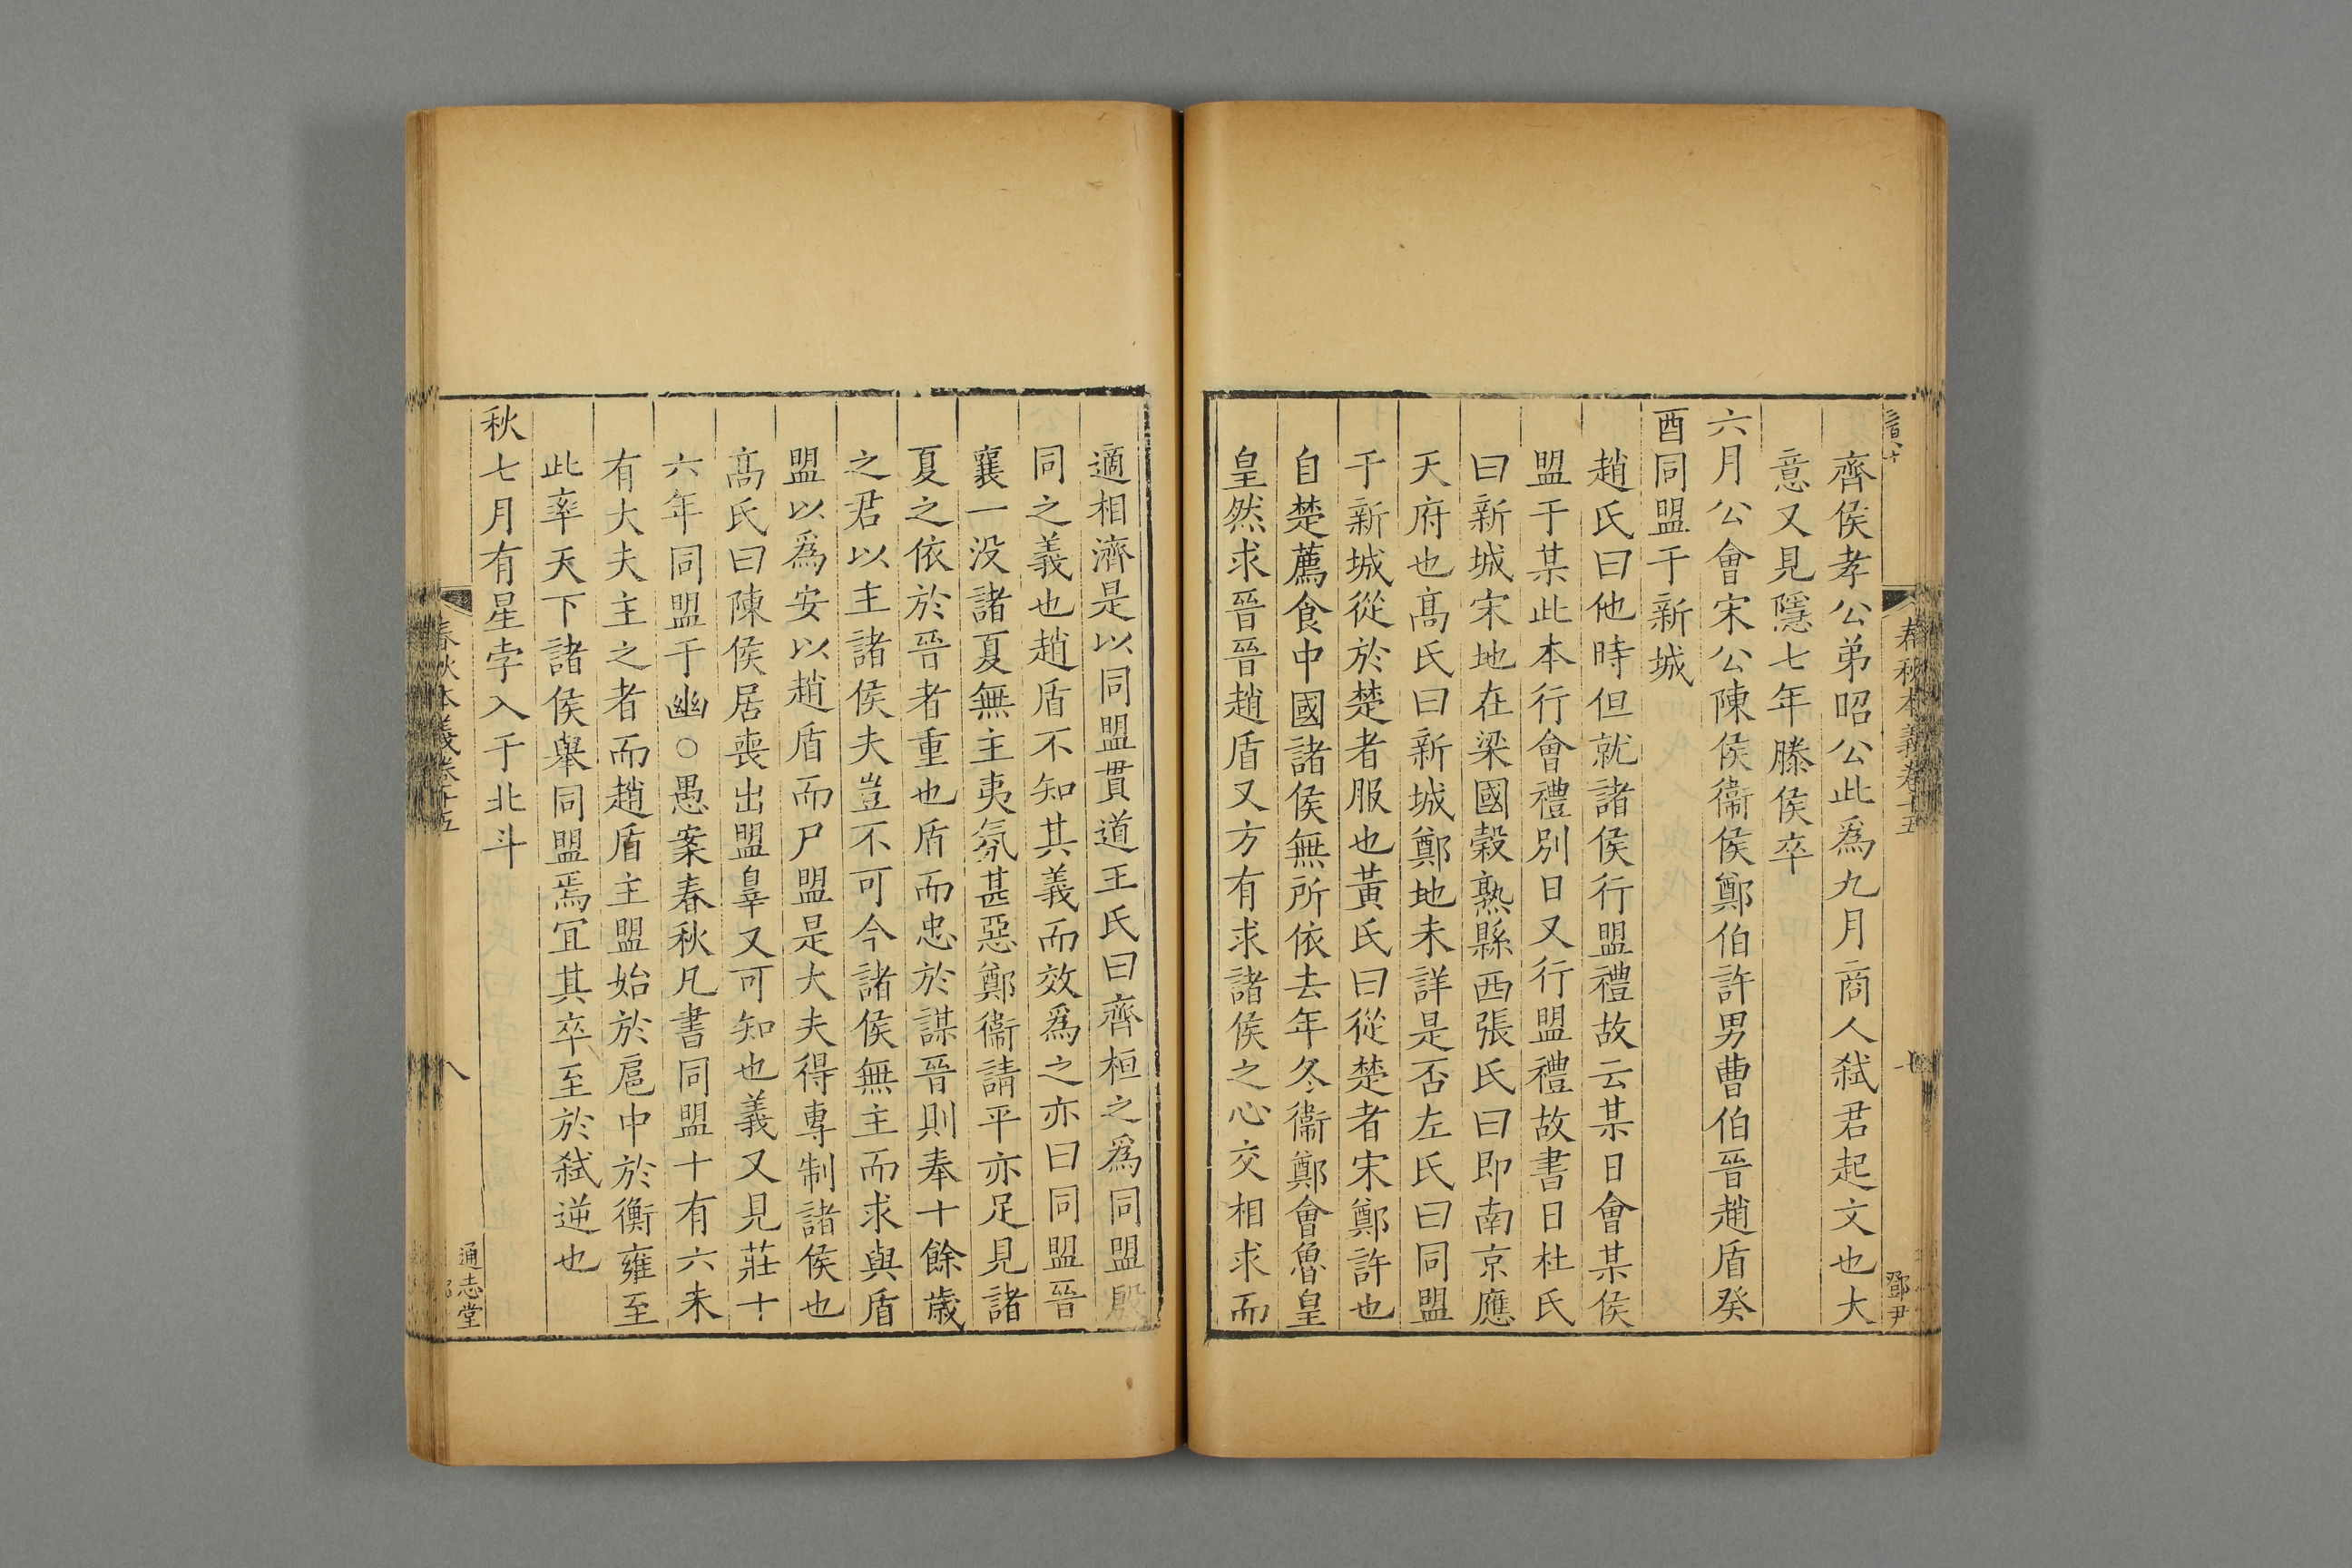 春秋本義卷十五
鄧尹
齊侯孝公弟昭公此爲九月商人弑君起文也大
意又見隱七年滕侯卒
六月公會宋公陳侯衞侯鄭伯許男曹伯晉趙盾癸
酉同盟于新城
趙氏曰他時但就諸侯行盟禮故云某日會某侯
盟于某此本行會禮別日又行盟禮故書日杜氏
曰新城宋地在梁國穀熟縣西張氏曰即南京應
天府也髙氏曰新城鄭地未詳是否左氏曰同盟
于新城從於楚者服也黃氏曰從楚者宋鄭許也
自楚薦食中國諸侯無所依去年冬衞鄭會魯皇
皇然求晉晉趙盾又方有求諸侯之心交相求而
適相濟是以同盟貫道王氏曰齊桓之爲同盟殷
同之義也趙盾不知其義而效爲之亦曰同盟晉
襄一没諸夏無主夷氛甚惡鄭衞請平亦足見諸
夏之依於晉者重也盾而忠於謀晉則奉十餘歲
之君以主諸侯夫豈不可今諸侯無主而求與盾
盟以爲安以趙盾而尸盟是大夫得專制諸侯也
髙氏曰陳侯居喪出盟辠又可知也義又見莊十
六年同盟于幽○愚案春秋凡書同盟十有六未
有大夫主之者而趙盾主盟始於扈中於衡雍至
此率天下諸侯舉同盟焉宜其卒至於弑逆也
秋七月有星孛入于北斗
春秋本義卷十五
八
通志堂